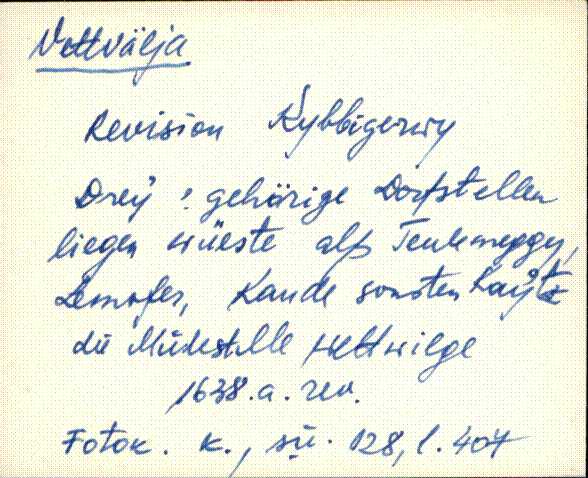 Vettvälja
Revision Kybbigerwy
Dreÿ ? gehörige Dorfstellen
liegen wüeste alß Teukmeggy,
Lemofer, Kande sonsten
die Mühestelle Wettwilge
1638.a. rev.
Fotok. k., sü. 128, l. 407